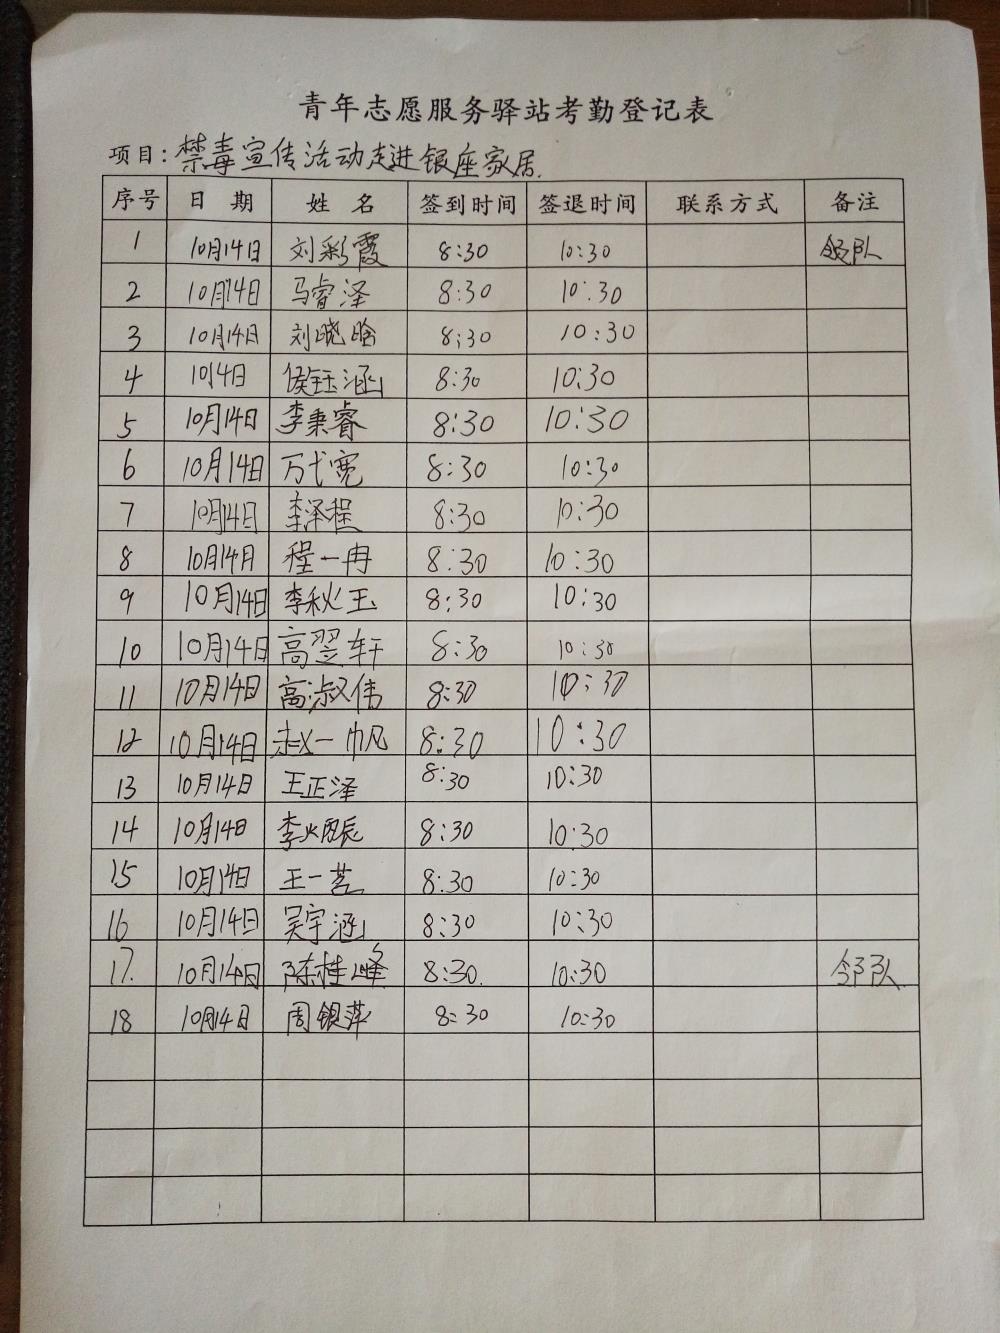 青年志愿服务驿站考勤登记表
项目:禁毒宣传活动走进银座家居.
序号 日 期 姓 名 签到时间 签退时间 联系方式 备注
1 10月14日 刘彩霞 8:30 10:30 领队
2 10月14日 马睿泽 8:30 10:30
3 10月14日 刘晓晗 8:30 10:30
4 10月4日 侯钰涵 8:30 10:30
5 10月14日 李秉睿 8:30 10:30
6 10月14日 万弋宽 8:30 10:30
7 10月14日 李泽程 8:30 10:30
8 10月14月 程一冉 8:30 10:30
9 10月14日 李秋玉 8:30 10:30
10 10月14日 高翌轩 8:30 10:30
11 10月14日 高淑伟 8:30 10:30
12 10月14日 赵一帆 8:30 10:30
13 10月14日 王正泽 8:30 10:30
14 10月14日 8:30 10:30
15 10月14日 王一茗 8:30 10:30
16 10月14日 吴宇涵 8:30 10:30
17. 10月14日 陈桂峰 8:30. 10:30 领队.
18 10月14日 周银萍 8:30 10:30